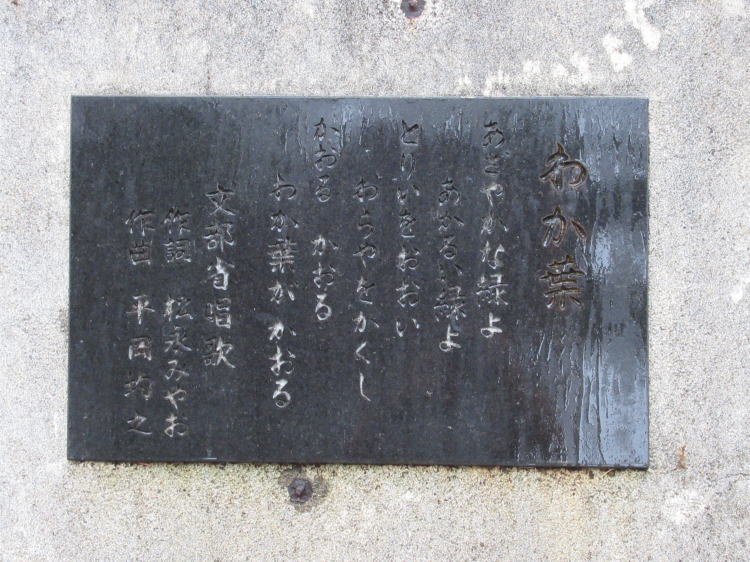 わか葉
あざやかな緑よ
あかるい緑よ
とりいをおおい
わらやをかくし
かおる　かおる
わか葉が　かおる
文部省唱歌
作詞　松永みやお
作曲　平岡均之